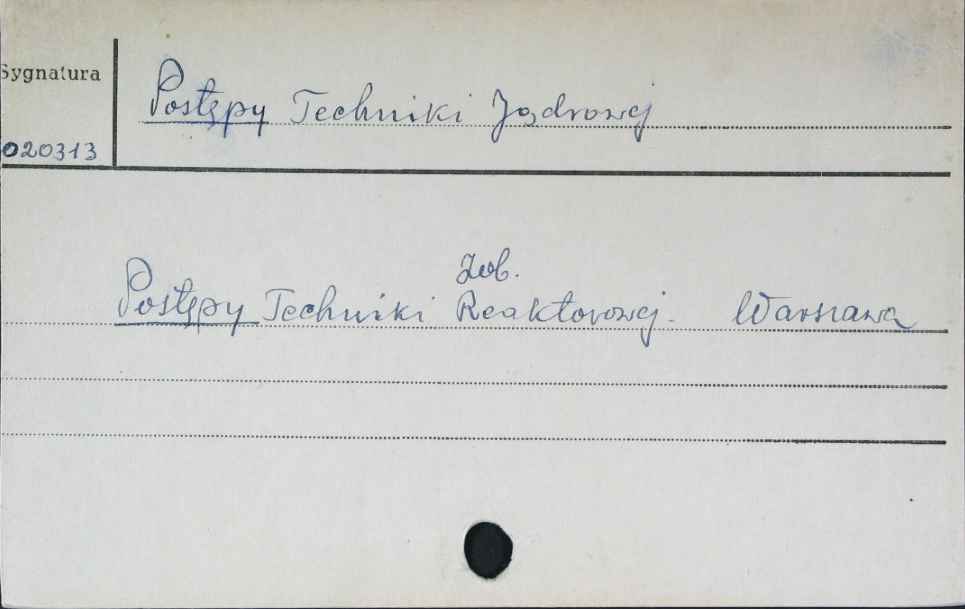 Sygnatura
Postępy Techniki Jądrowej
020313
Zob.
Postępy Techniki Reaktorowej. Warszawa